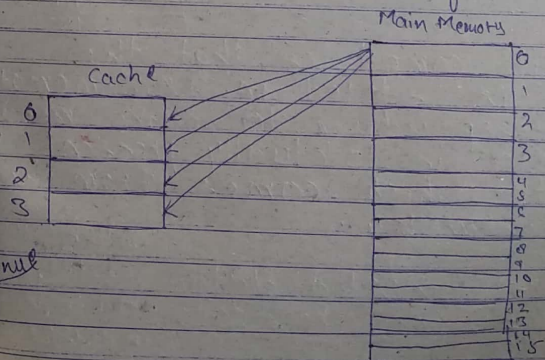 Main Memory
Cache
0
1
2
3
0
1
2
3
4
5
6
7
8
9
10
11
12
13
14
15